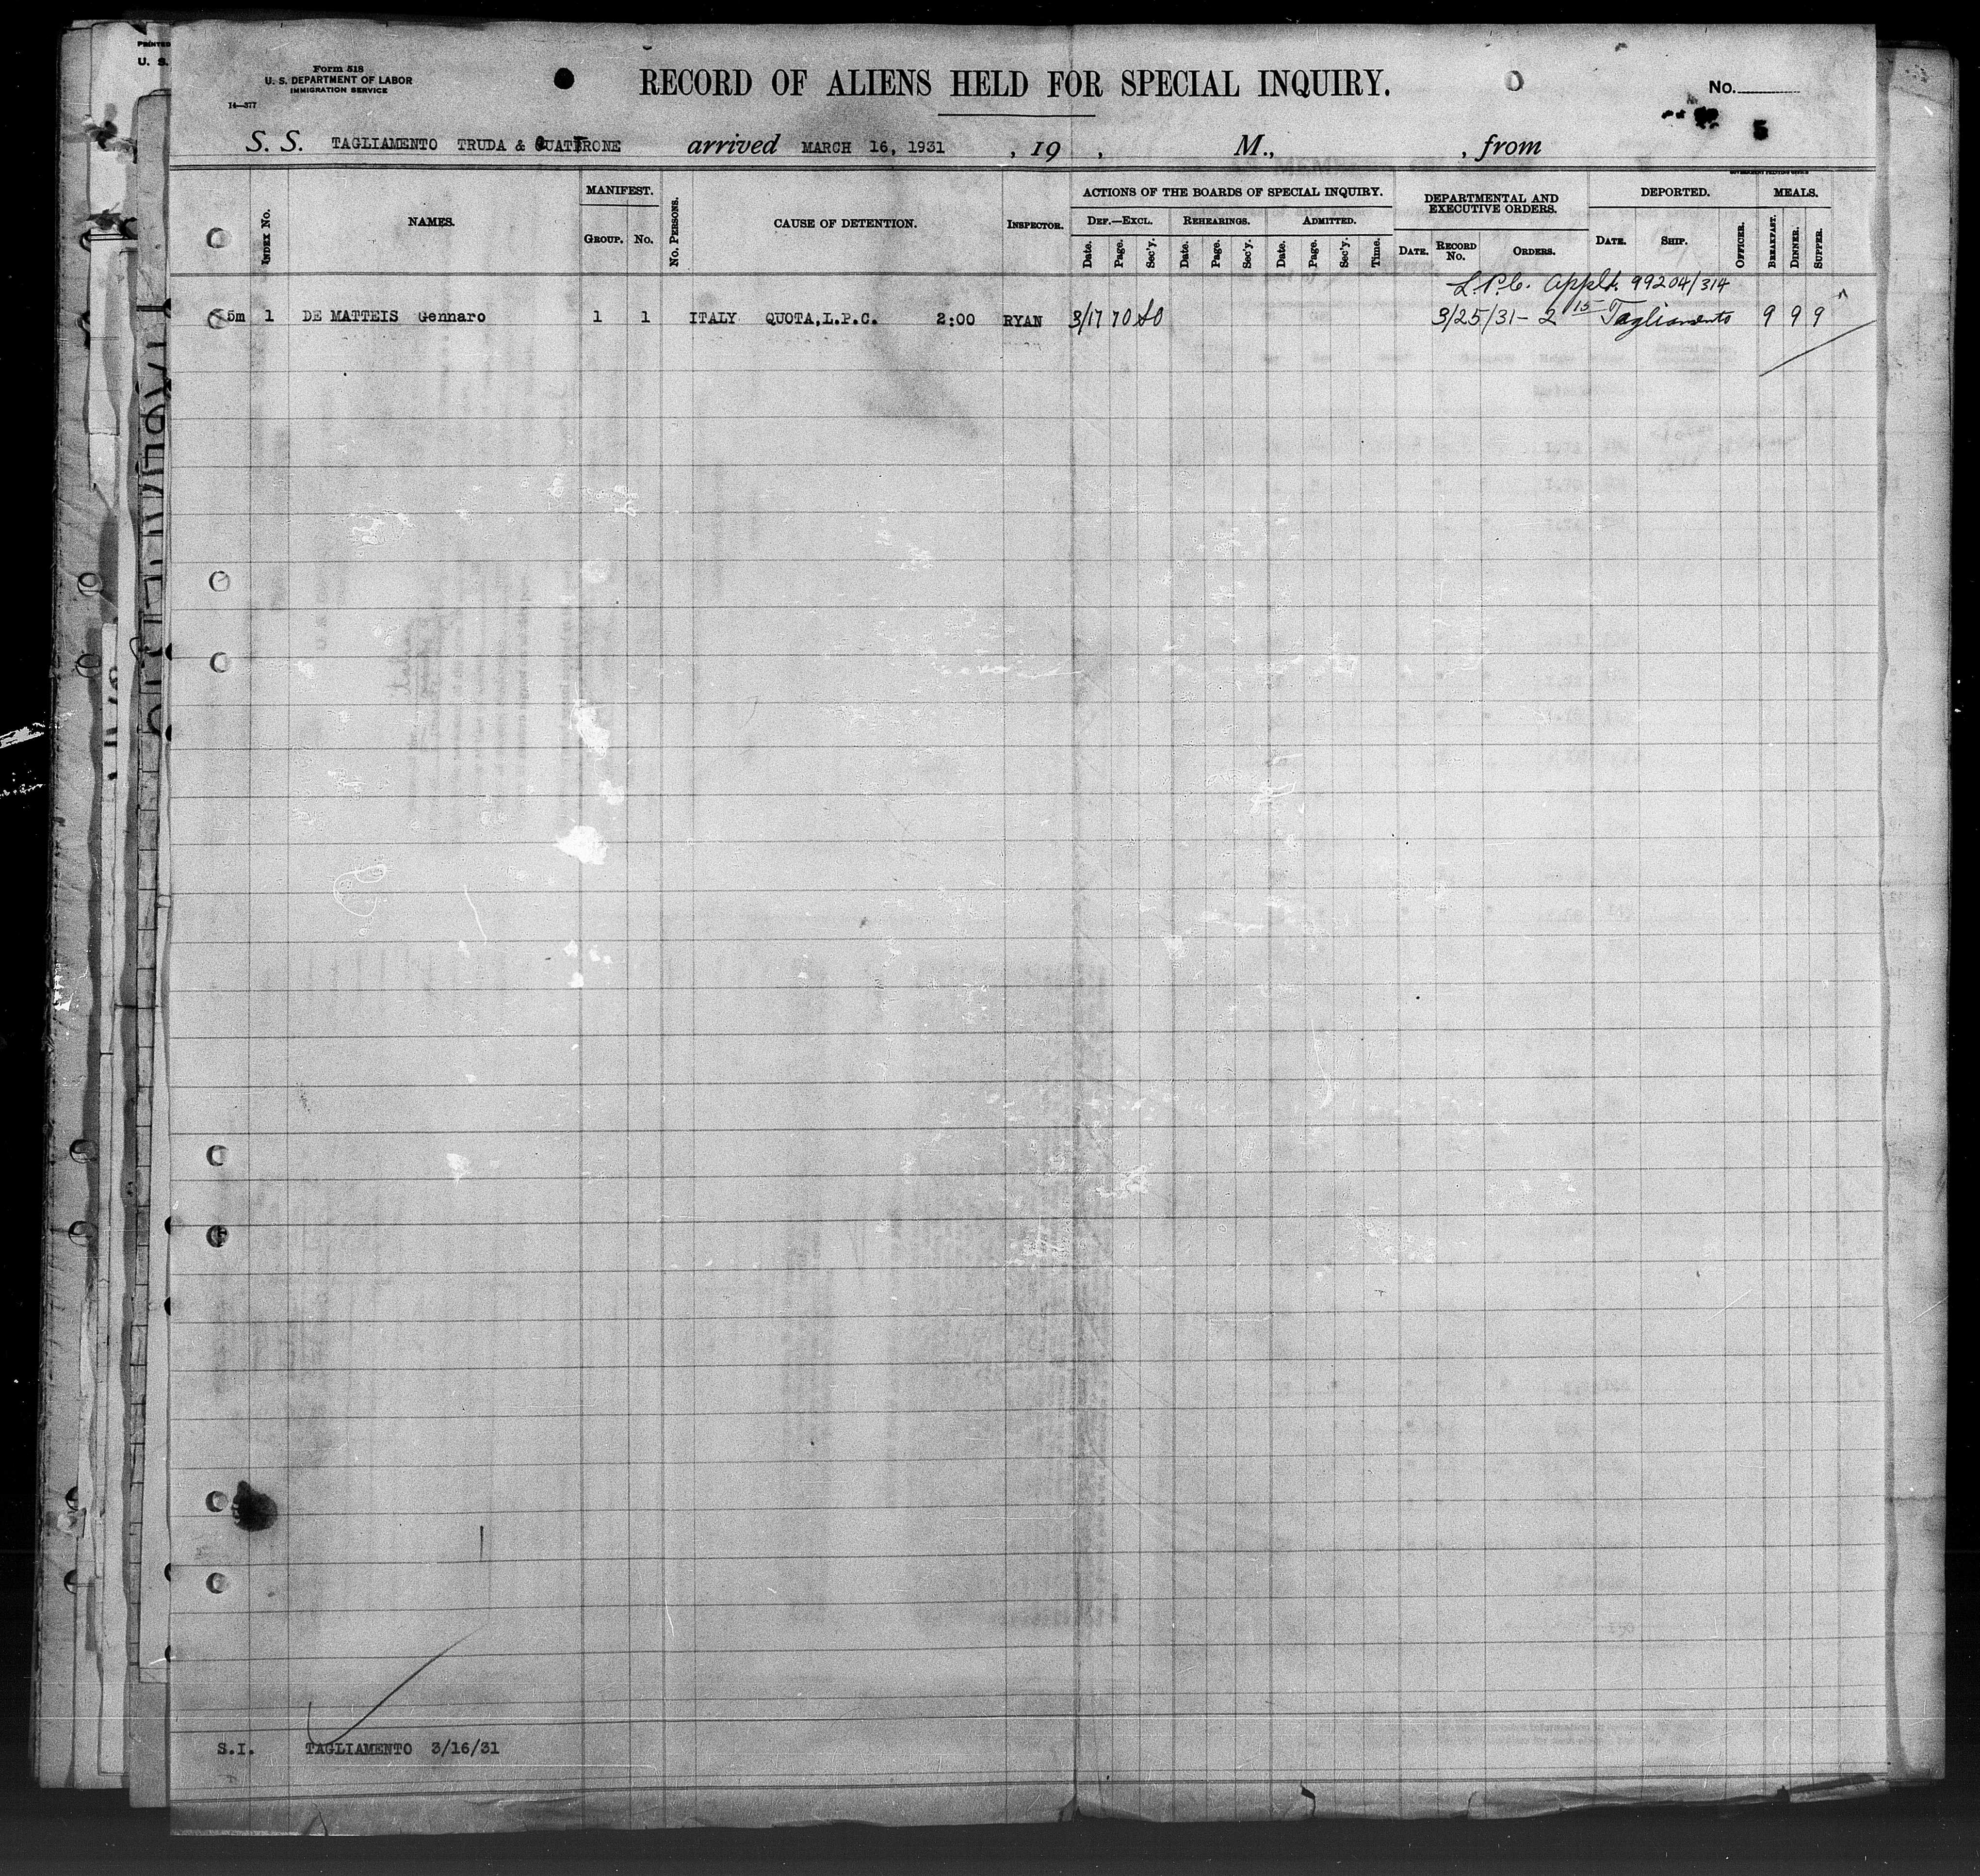 PRINTED
U. S.
Form 518
U. S. DEPARTMENT OF LABOR
IMMIGRATION SERVICE
14—377
RECORD OF ALIENS HELD FOR SPECIAL INQUIRY.
No.
5
S. S. TAGLIAMENTO TRUDA & QUATTRONE arrived MARCH 16, 1931 , 19 , M., , from
GOVERNMENT PRINTING OFFICE
INDEX NO. NAMES. MANIFEST. GROUP. NO. NO. PERSONS. CAUSE OF DETENTION. INSPECTOR. ACTIONS OF THE BOARDS OF SPECIAL INQUIRY. DEF.—EXCL. Date. Page. Sec'y. REHEARINGS. Date. Page. Sec'y. ADMITTED. Date. Page. Sec'y. Time. DEPARTMENTAL AND EXECUTIVE ORDERS. DATE. RECORD NO. ORDERS. DEPORTED. DATE. SHIP. OFFICER. MEALS. BREAKFAST. DINNER. SUPPER.
L.P.C. Appld. 99204/314
5m 1 DE MATTEIS Gennaro 1 1 ITALY QUOTA, L.P.C. 2:00 RYAN 3/17 70 3/25/31 - 2 15 Tagliamento 9 9 9
S.I. TAGLIAMENTO 3/16/31